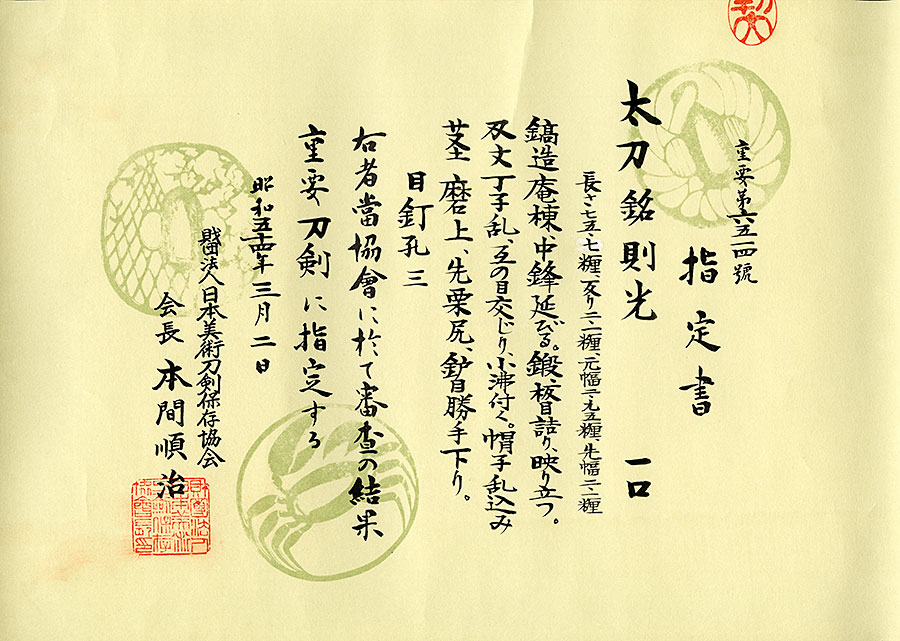 重要第六五一四號
指定書
太刀 銘 則光 一口
長さ七五、七糎、反り二、二糎、元幅二、九五糎、先幅二、二糎
鎬造、庵棟、中鋒延びる。鍛、板目詰り、映り立つ。
刃文丁子乱、互の目交じり、小沸付く。帽子乱込み
茎 磨上、先栗尻、鑢目勝手下り。
目釘孔三
右者當協會に於て審査の結果
重要刀剣に指定する
昭和五十四年三月二日
財団法人日本美術刀剣保存協会
会長 本間順治